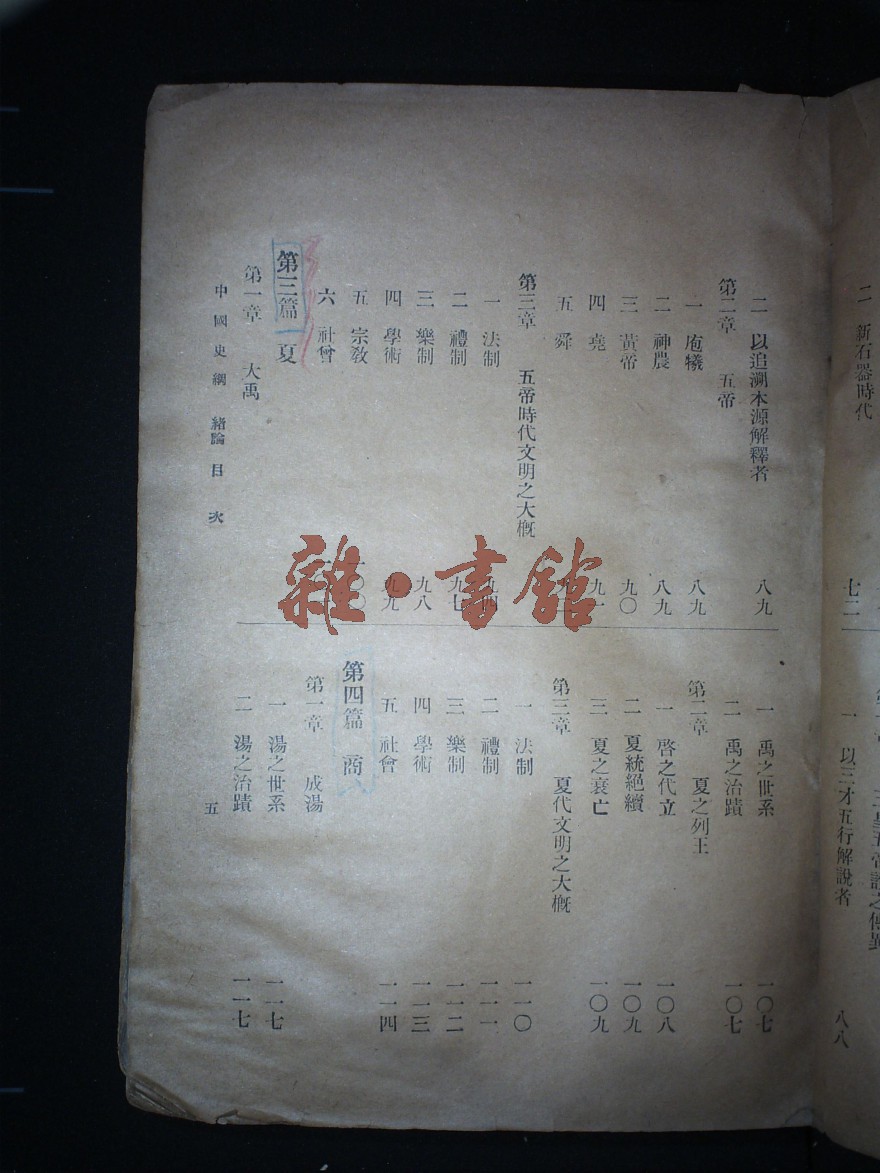 二 新石器時代 七二
一 以三才五行解說者 八八
二 以追溯本源解釋者 八九
第二章 五帝
一 庖犧 八九
二 神農 八九
三 黃帝 九〇
四 堯 九一
五 舜
第三章 五帝時代文明之大槪
一 法制 九四
二 禮制 九七
三 樂制 九八
四 學術 九九
五 宗敎 一〇〇
六 社會
第三篇 夏
第一章 大禹
一 禹之世系 一〇七
二 禹之治蹟 一〇七
第二章 夏之列王
一 啓之代立 一〇八
二 夏統絕續 一〇九
三 夏之衰亡 一〇九
第三章 夏代文明之大槪
一 法制 一一〇
二 禮制 一一一
三 樂制 一一二
四 學術 一一三
五 社會 一一四
第四篇 商
第一章 成湯
一 湯之世系 一一七
二 湯之治蹟 一一七
中國史綱 緒論 目次 五
雜·書館